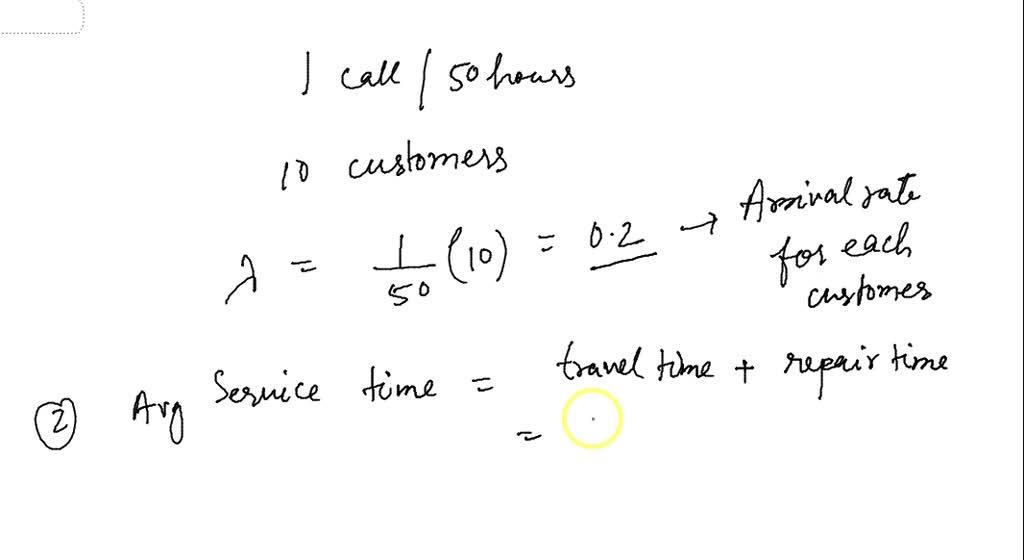 1 call / 50 hours
10 customers
λ = 1/50 (10) = 0.2 → Arrival rate
for each
customer
② Avg Service time = travel time + repair time
=